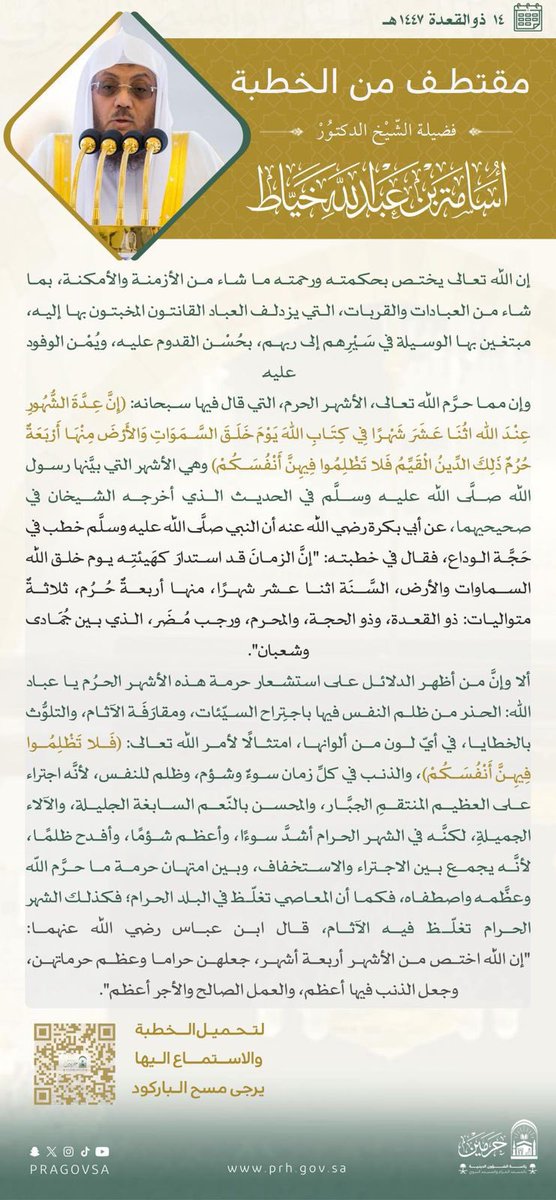 ١٤ ذوالقعدة ١٤٤٧هـ
مقتطف من الخطبة
فضيلة الشّيْخ الدكتُورْ
أُسَامَة بْنُ عَبْدِاللهِ خَيَّاط
إن الله تعالى يختص بحكمته ورحمته ما شاء من الأزمنة والأمكنة، بما
شاء من العبادات والقربات، التي يزدلف العباد القانتون المخبتون بها إليه،
مبتغين بها الوسيلة في سَيْرِهم إلى ربهم، بحُسْن القدوم عليه، ويُمْن الوفود
عليه.
وإن مما حرَّم الله تعالى، الأشهر الحرم، التي قال فيها سبحانه: (إِنَّ عِدَّةَ الشُّهُورِ
عِنْدَ الله اثْنَا عَشَرَ شَهْرًا فِي كِتَابِ اللهَ يَوْمَ خَلَقَ السَّمَوَاتِ وَالأَرْضَ مِنْهَا أَرْبَعَةٌ
حُرُمٌ ذَلِكَ الدِّينُ الْقَيِّمُ فَلا تَظْلِمُوا فِيهِنَّ أَنْفُسَكُمْ) وهي الأشهر التي بيَّنها رسول
الله صلَّى الله عليه وسلَّم في الحديث الذي أخرجه الشيخان في
صحيحيهما، عن أبي بكرة رضي الله عنه أن النبي صلَّى الله عليه وسلَّم خطب في
حَجَّة الوداع، فقال في خطبته: "إنَّ الزمانَ قد استدارَ كهَيئتِه يوم خلق الله
السماوات والأرض، السَّنَة اثنا عشر شهرًا، منها أربعةٌ حُرُم، ثلاثةٌ
متواليات: ذو القعدة، وذو الحجة، والمحرم، ورجب مُضَر، الذي بين جُمَادى
وشعبان".
ألا وإنَّ من أظهر الدلائل على استشعار حرمة هذه الأشهر الحرُم يا عباد
الله: الحذر من ظلم النفس فيها باجتراح السيّئات، ومقارَفَة الآثام، والتلوُّث
بالخطايا، في أيّ لون من ألوانها، امتثالًا لأمر الله تعالى: (فَلا تَظْلِمُوا
فِيهِنَّ أَنْفُسَكُمْ)، والذنب في كلِّ زمان سوءٌ وشؤم، وظلم للنفس، لأنَّه اجتراء
على العظيم المنتقمِ الجبَّار، والمحسن بالنّعم السابغة الجليلة، والآلاء
الجميلةِ، لكنَّه في الشهر الحرام أشدَّ سوءًا، وأعظم شؤمًا، وأفدح ظلمًا،
لأنَّه يجمع بين الاجتراء والاستخفاف، وبين امتهان حرمة ما حرَّم الله
وعظَّمه واصطفاه، فكما أن المعاصي تغلَظ في البلد الحرام؛ فكذلك الشهر
الحرام تغلَظ فيه الآثام، قال ابن عباس رضي الله عنهما:
"إن الله اختص من الأشهر أربعة أشهر، جعلهن حراما وعظم حرماتهن،
وجعل الذنب فيها أعظم، والعمل الصالح والأجر أعظم".
لتحميل الخطبة
والاستماع اليها
يرجى مسح الباركود
PRAGOVSA
www.prh.gov.sa
حرمين